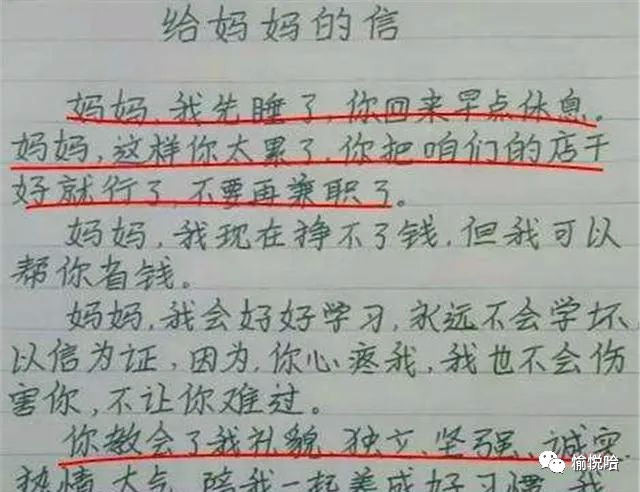 给妈妈的信
妈妈,我先睡了,你回来早点休息。
妈妈,这样你太累了,你把咱们的店干
好就行了,不要再兼职了。
妈妈,我现在挣不了钱,但我可以
帮你省钱。
妈妈,我会好好学习,永远不会学坏,
以信为证,因为,你心疼我,我也不会伤
害你,不让你难过。
你教会了我礼貌、独立、坚强、诚实、
热情、大气,陪我一起养成好习惯,我
愉悦哈